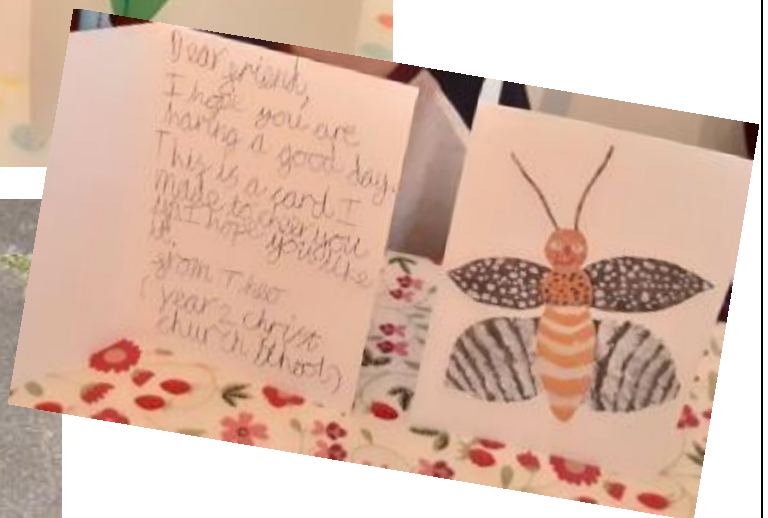 Dear friend,
I hope you are
having a good day.
This is a card I
made to cheer you
up I hope you like
it.
from Theo
(year 2 christ
church school)